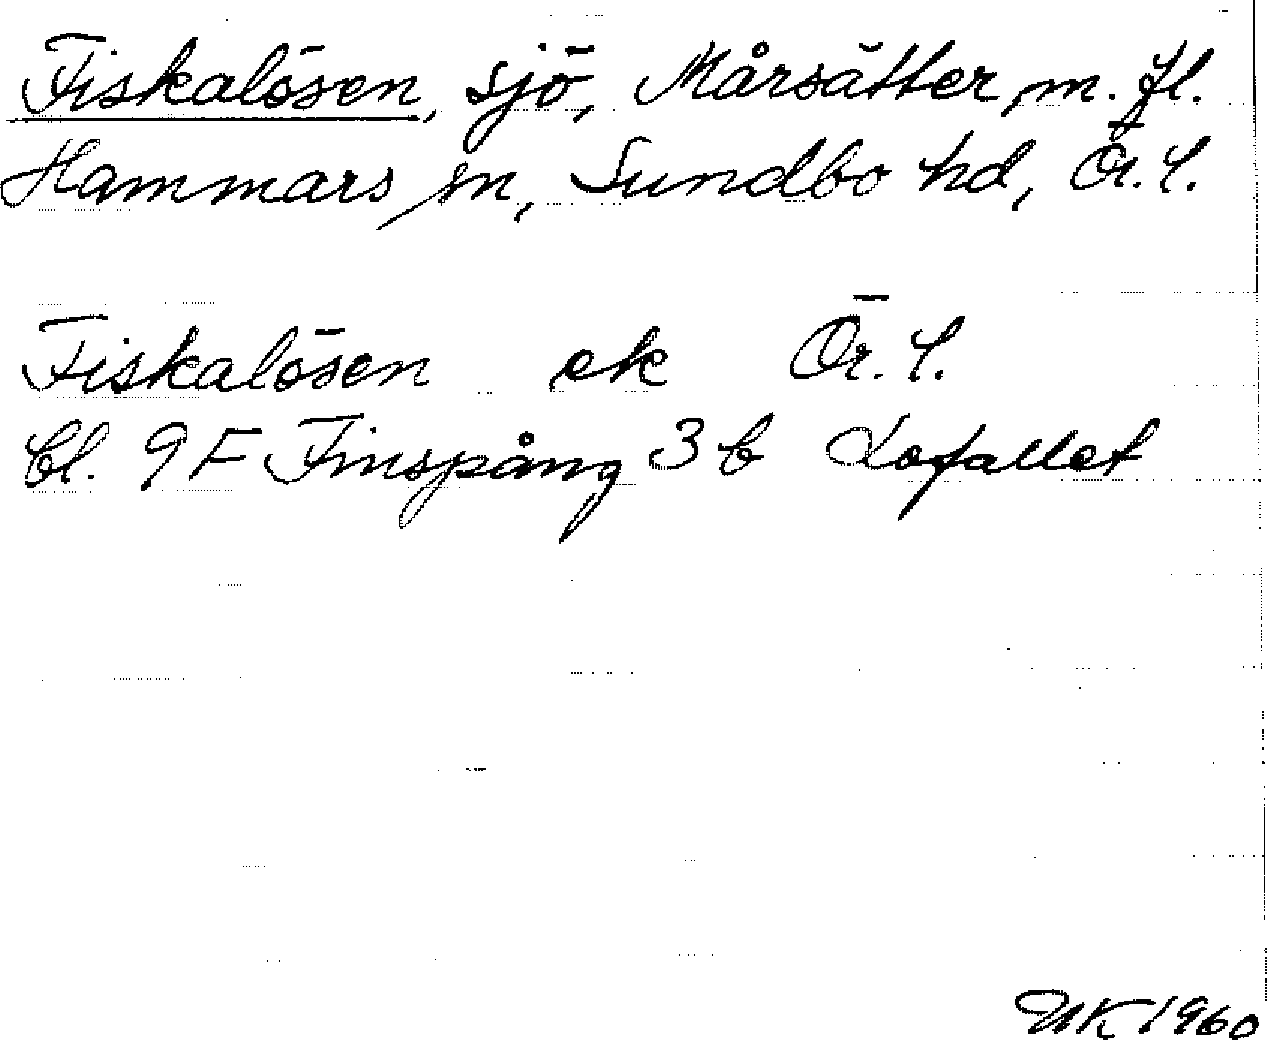 Fiskalösen, sjö, Mårsätter, m. fl.
Hammars sn, Sundbo hd, Ör. l.
Fiskalösen ek Ör. l.
bl. 9F Finspång 3 b Lofallet
UK 1960